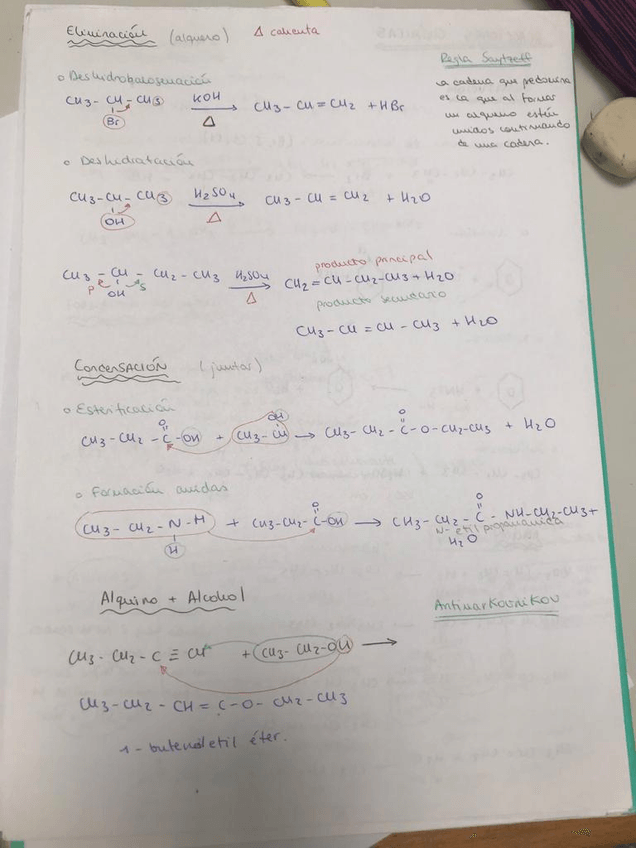 Eliminación (alqueno) Δ calienta
Regla Saytzeff
La cadena que predomina
es la que al formar
un alqueno estén
unidos continuando
de una cadena.
o Deshidrohalogenación
CH3 - CH - CH3 KOH Δ → CH3 - CH = CH2 + HBr
Br
o Deshidratación
CH3 - CH - CH3 H2SO4 Δ → CH3 - CH = CH2 + H2O
OH
producto principal
CH3 - CH - CH2 - CH3 H2SO4 Δ → CH2 = CH - CH2 - CH3 + H2O
P OH S
producto secundario
CH3 - CH = CH - CH3 + H2O
Condensación (juntar)
o Esterificación
O OH O
CH3 - CH2 - C - OH + CH3 - CH → CH3 - CH2 - C - O - CH2 - CH3 + H2O
o Formación amidas
O O
CH3 - CH2 - N - H + CH3 - CH2 - C - OH → CH3 - CH2 - C - NH - CH2 - CH3 +
H H2O
N-etil propanamida
Alquino + Alcohol
Antimarkovnikov
CH3 - CH2 - C ≡ CH + CH3 - CH2 - OH →
CH3 - CH2 - CH = C - O - CH2 - CH3
1-butenoletil éter.